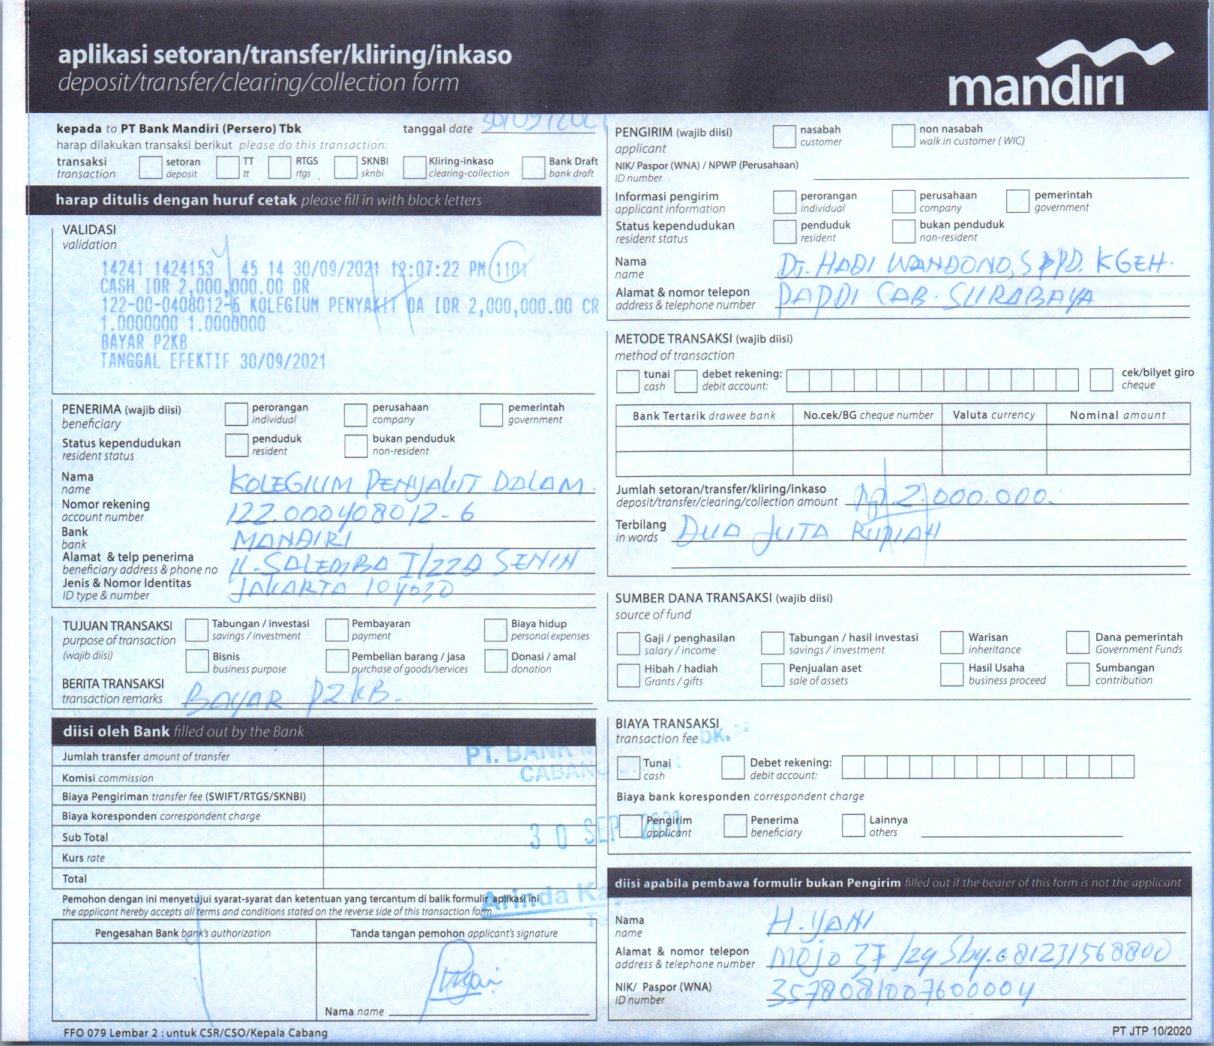 aplikasi setoran/transfer/kliring/inkaso
deposit/transfer/clearing/collection form
mandiri
kepada to PT Bank Mandiri (Persero) Tbk
tanggal date 30/09/2021
harap dilakukan transaksi berikut please do this transaction:
transaksi
transaction
setoran
deposit
TT
tt
RTGS
rtgs
SKNBI
sknbi
Kliring-inkaso
clearing-collection
Bank Draft
bank draft
harap ditulis dengan huruf cetak please fill in with block letters
VALIDASI
validation
14241 1424153 45 14 30/09/2021 12:07:22 PM 1101
CASH IDR 2,000,000.00 DR
122-00-0408012-6 KOLEGIUM PENYAKIT DA IDR 2,000,000.00 CR
1.0000000 1.0000000
BAYAR P2KB
TANGGAL EFEKTIF 30/09/2021
PENERIMA (wajib diisi)
beneficiary
perorangan
individual
perusahaan
company
pemerintah
government
Status kependudukan
resident status
penduduk
resident
bukan penduduk
non-resident
Nama
name
KOLEGIUM PENYAKIT DALAM
Nomor rekening
account number
122.000408012-6
Bank
bank
MANDIRI
Alamat & telp penerima
beneficiary address & phone no
JL. SALEMBA I/22D SENIN
Jenis & Nomor Identitas
ID type & number
JAKARTA 104030
TUJUAN TRANSAKSI
purpose of transaction
(wajib diisi)
Tabungan / investasi
savings / investment
Pembayaran
payment
Biaya hidup
personal expenses
Bisnis
business purpose
Pembelian barang / jasa
purchase of goods/services
Donasi / amal
donation
BERITA TRANSAKSI
transaction remarks
BAYAR P2KB.
diisi oleh Bank filled out by the Bank
Jumlah transfer amount of transfer
Komisi commission
Biaya Pengiriman transfer fee (SWIFT/RTGS/SKNBI)
Biaya koresponden correspondent charge
Sub Total
Kurs rate
Total
PT. BANK
CABANG
30 SEP 2021
Arinda
Pemohon dengan ini menyetujui syarat-syarat dan ketentuan yang tercantum di balik formulir aplikasi ini
the applicant hereby accepts all terms and conditions stated on the reverse side of this transaction form
Pengesahan Bank bank's authorization
Tanda tangan pemohon applicant's signature
Nama name
FFO 079 Lembar 2 : untuk CSR/CSO/Kepala Cabang
PENGIRIM (wajib diisi)
applicant
nasabah
customer
non nasabah
walk in customer ( WIC)
NIK/ Paspor (WNA) / NPWP (Perusahaan)
ID number
Informasi pengirim
applicant information
perorangan
individual
perusahaan
company
pemerintah
government
Status kependudukan
resident status
penduduk
resident
bukan penduduk
non-resident
Nama
name
Dr. HADI WANDONO, SPPD. KGEH.
Alamat & nomor telepon
address & telephone number
PAPDI CAB. SURABAYA
METODE TRANSAKSI (wajib diisi)
method of transaction
tunai
cash
debet rekening:
debit account:
cek/bilyet giro
cheque
Bank Tertarik drawee bank
No.cek/BG cheque number
Valuta currency
Nominal amount
Jumlah setoran/transfer/kliring/inkaso
deposit/transfer/clearing/collection amount
Rp. 2.000.000.
Terbilang
in words
DUA JUTA RUPIAH
SUMBER DANA TRANSAKSI (wajib diisi)
source of fund
Gaji / penghasilan
salary / income
Tabungan / hasil investasi
savings / investment
Warisan
inheritance
Dana pemerintah
Government Funds
Hibah / hadiah
Grants / gifts
Penjualan aset
sale of assets
Hasil Usaha
business proceed
Sumbangan
contribution
BIAYA TRANSAKSI
transaction fee
Tunai
cash
Debet rekening:
debit account:
Biaya bank koresponden correspondent charge
Pengirim
applicant
Penerima
beneficiary
Lainnya
others
diisi apabila pembawa formulir bukan Pengirim filled out if the bearer of this form is not the applicant
Nama
name
H. YANI
Alamat & nomor telepon
address & telephone number
MOJO 37 /24 Sby. 081231568800
NIK/ Paspor (WNA)
ID number
3578081007600004
PT JTP 10/2020